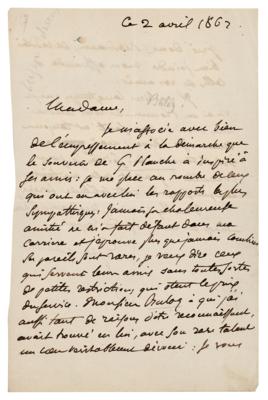 Ce 2 avril 1862
Madame,
Je m'associe avec bien
de l'empressement à la démarche que
le souvenir de G Planche a inspiré à
ses amis : je me place au nombre de ceux
qui ont eu avec lui les rapports les plus
sympathiques : jamais sa chaleureuse
amitié ne m'a fait défaut dans ma
carrière et j'éprouve plus que jamais combien
ses pareils sont rares, je veux dire ceux
qui servent leurs amis sans toutes sortes
de petites restrictions qui ôtent le prix
du service. Monsieur Buloz à qui j'ai
aussi tant de raisons d'être reconnaissant,
avait trouvé en lui, avec son rare talent
un cœur véritablement dévoué : je vous